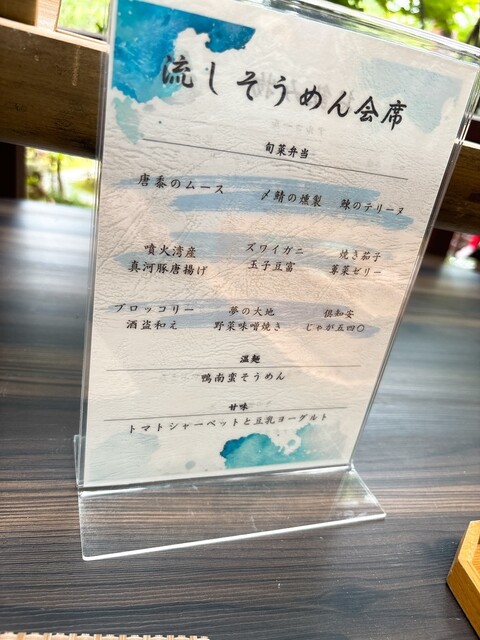 流しそうめん会席
旬菜弁当
唐黍のムース 〆鯖の燻製 鰊のテリーヌ
噴火湾産 ズワイガニ 焼き茄子
真河豚唐揚げ 玉子豆富 蓴菜ゼリー
ブロッコリー 夢の大地 倶知安
酒盗和え 野菜味噌焼き じゃが五四〇
温麺
鴨南蛮そうめん
甘味
トマトシャーベットと豆乳ヨーグルト